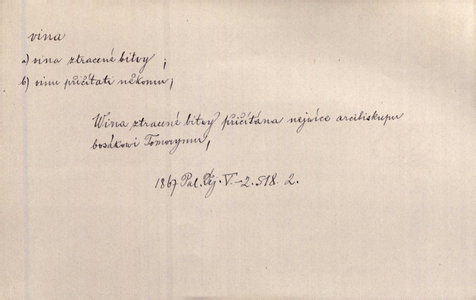 vina
a) vina ztracené bitvy ;
b) vinu přičítati někomu ;
Wina ztracené bitvy přičítána nejwíce arcibiskupu
bosákowi Tomorymu,
1867 Pal. Děj. V.–2. 518. 2.